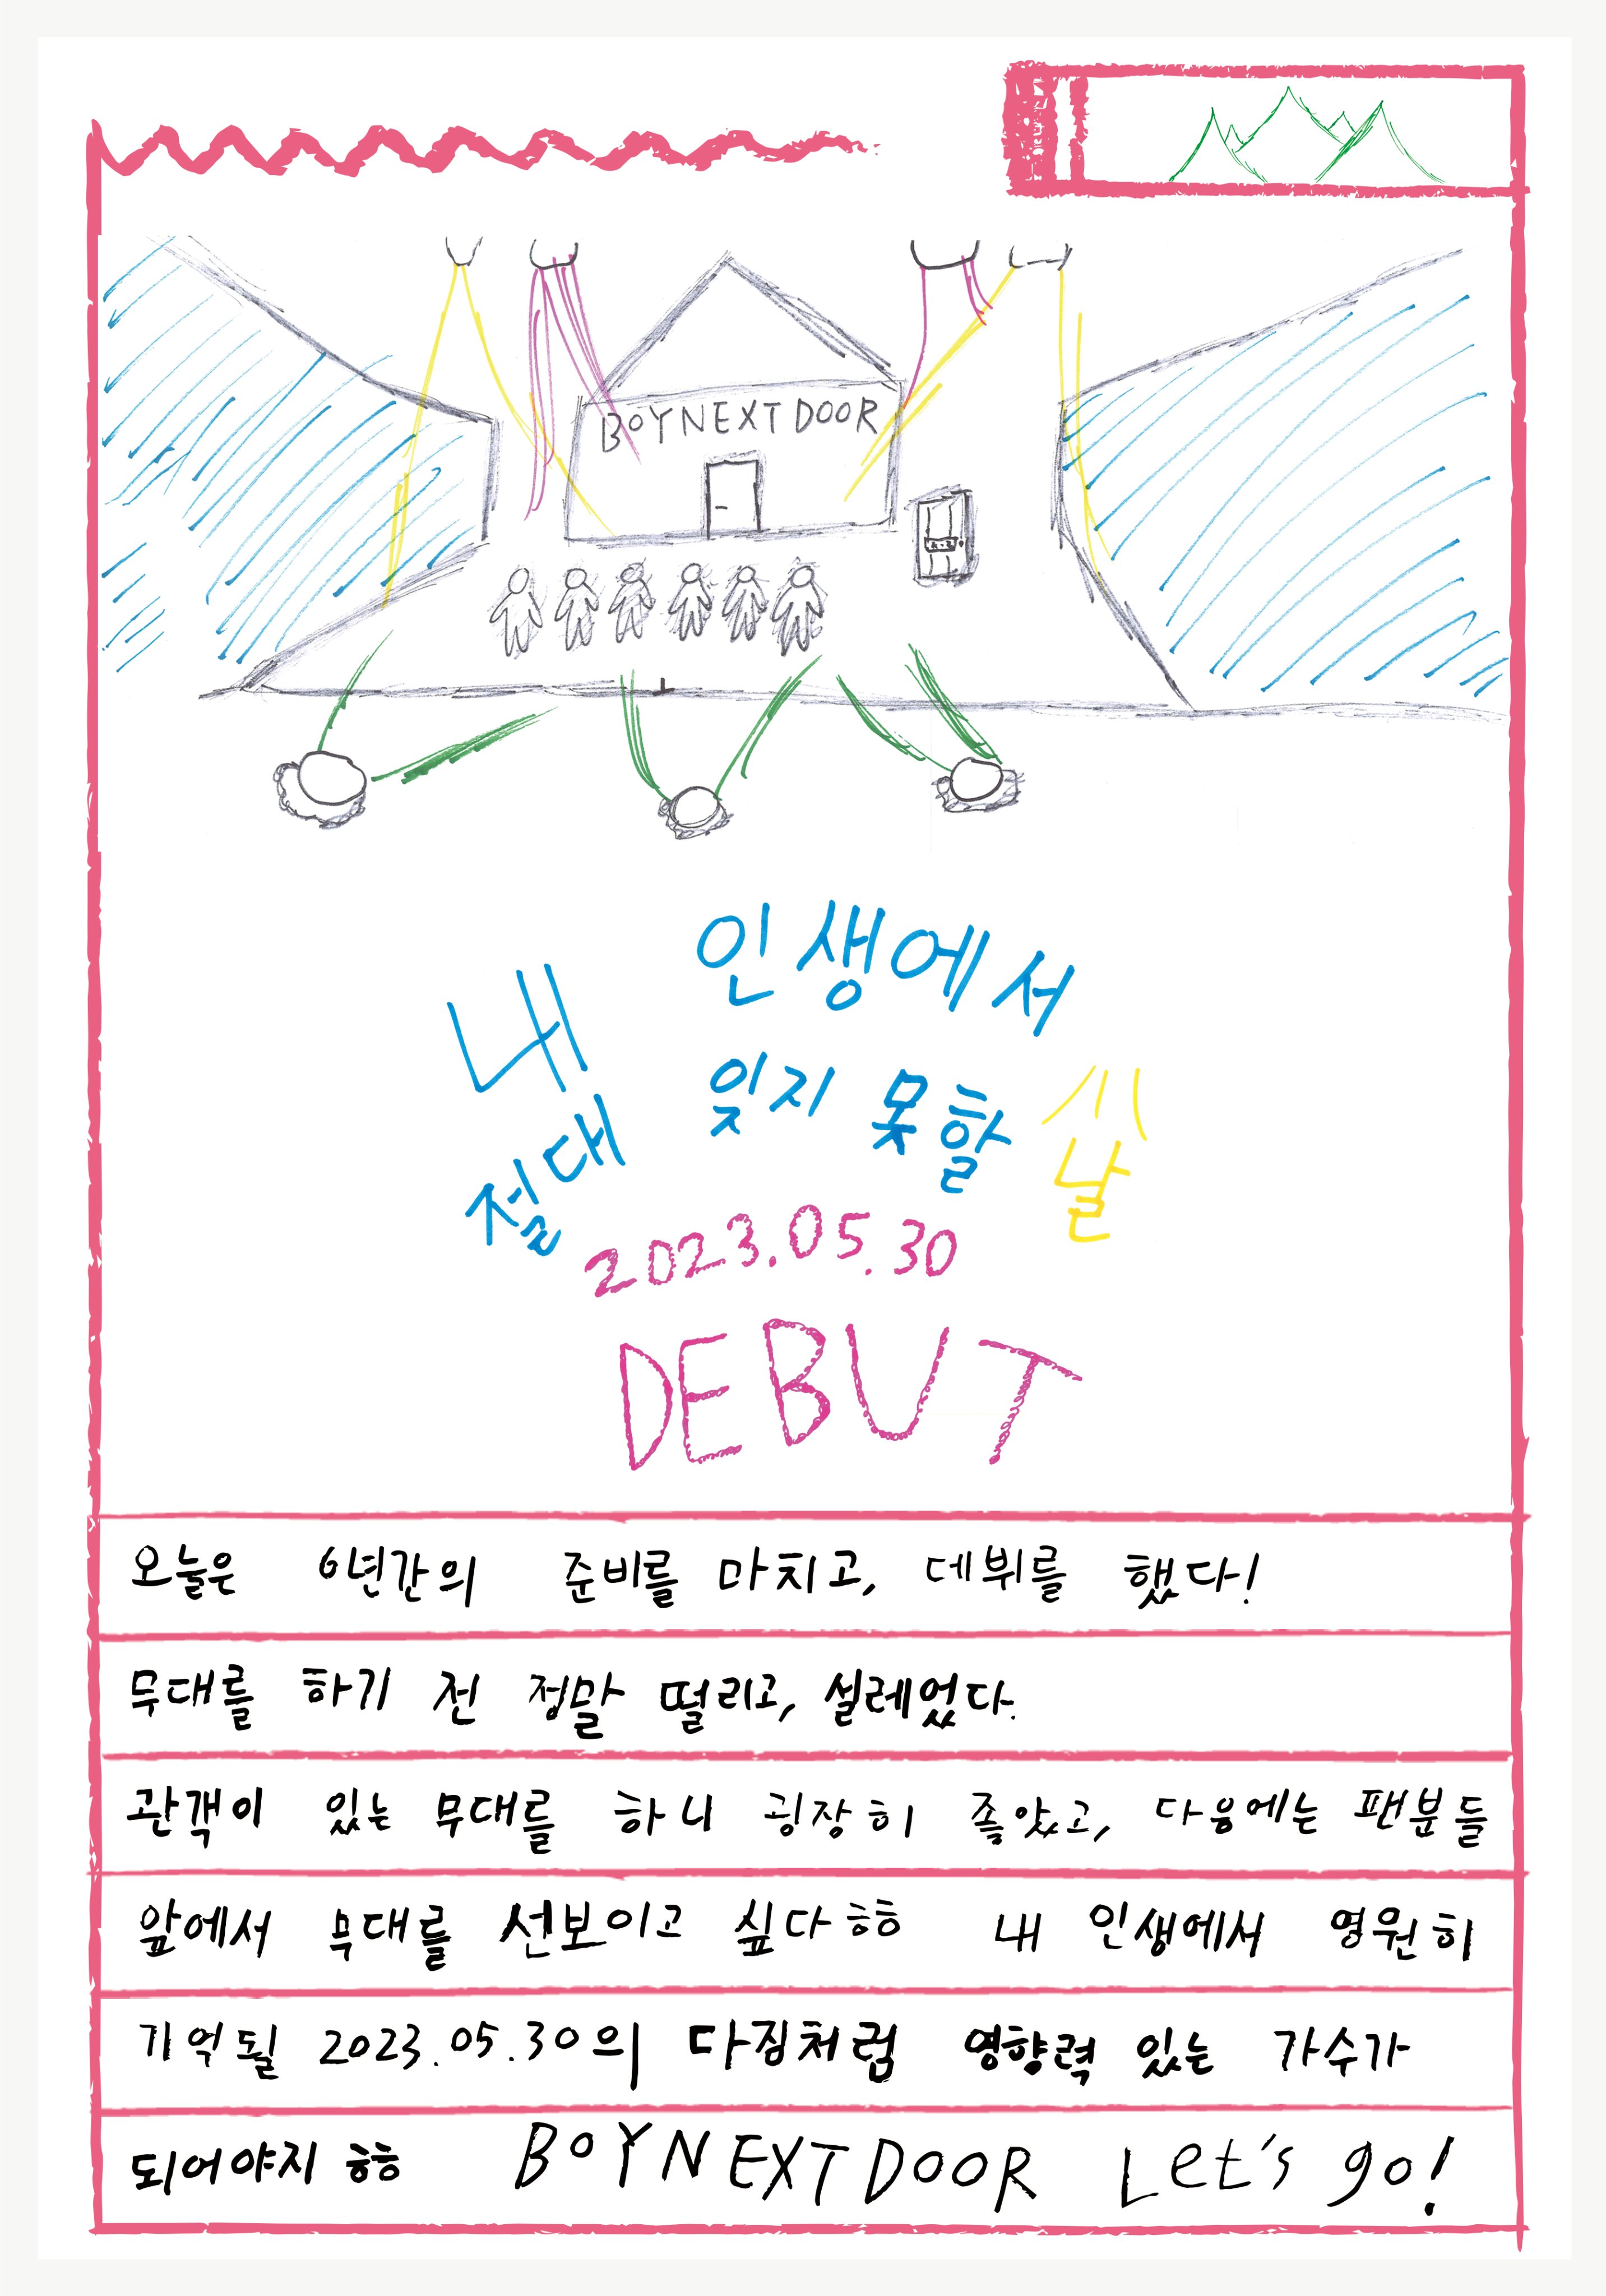 BOYNEXTDOOR
내 인생에서
절대 잊지 못할 날
2023.05.30
DEBUT
오늘은 6년간의 준비를 마치고, 데뷔를 했다!
무대를 하기 전 정말 떨리고, 설레었다.
관객이 있는 무대를 하니 굉장히 좋았고, 다음에는 팬분들
앞에서 무대를 선보이고 싶다ㅎㅎ 내 인생에서 영원히
기억될 2023.05.30의 다짐처럼 영향력 있는 가수가
되어야지 ㅎㅎ BOYNEXTDOOR Let's go!